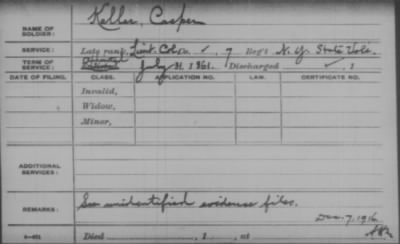 NAME OF SOLDIER: Keller, Casper
SERVICE: Late rank, Lieut. Col. ✓, 7 Reg't N. Y. State Vols.
TERM OF SERVICE: Enrolled July 31, 1861. Discharged ✓, 1
DATE OF FILING. CLASS. APPLICATION NO. LAW. CERTIFICATE NO.
Invalid,
Widow,
Minor,
ADDITIONAL SERVICES:
REMARKS: See unidentified evidence files.
Dec. 7, 1916
Died , 1 , at